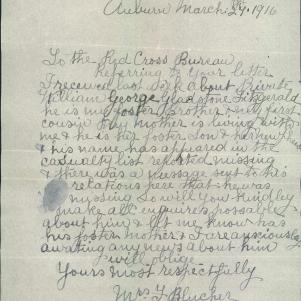 Auburn March 29, 1916
To the Red Cross Bureau
Referring to your letter
I received last week about Private
William George Gladstone Fitzgerald
he is my foster Brother & my first
cousin my mother is living with
me & he is her foster Son & her nephew
& his name has appeared in the
casualty list reported missing
& there was a message sent to his
relations here that he was
missing so will you kindley
make all inquires possable
about him & let me know has
his foster mother & I are ansciously
awating any news about him
& will oblige
Yours most respectfully
Mrs Blucher